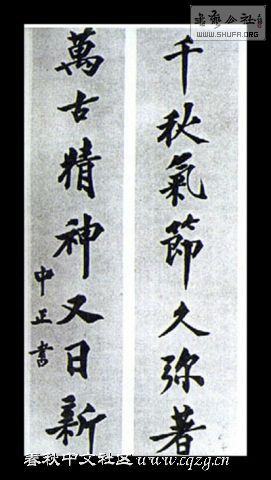 千秋氣節久弥著
萬古精神又日新
中正書
WWW.SHUFA.ORG
春秋中文社区 www.cqzg.cn